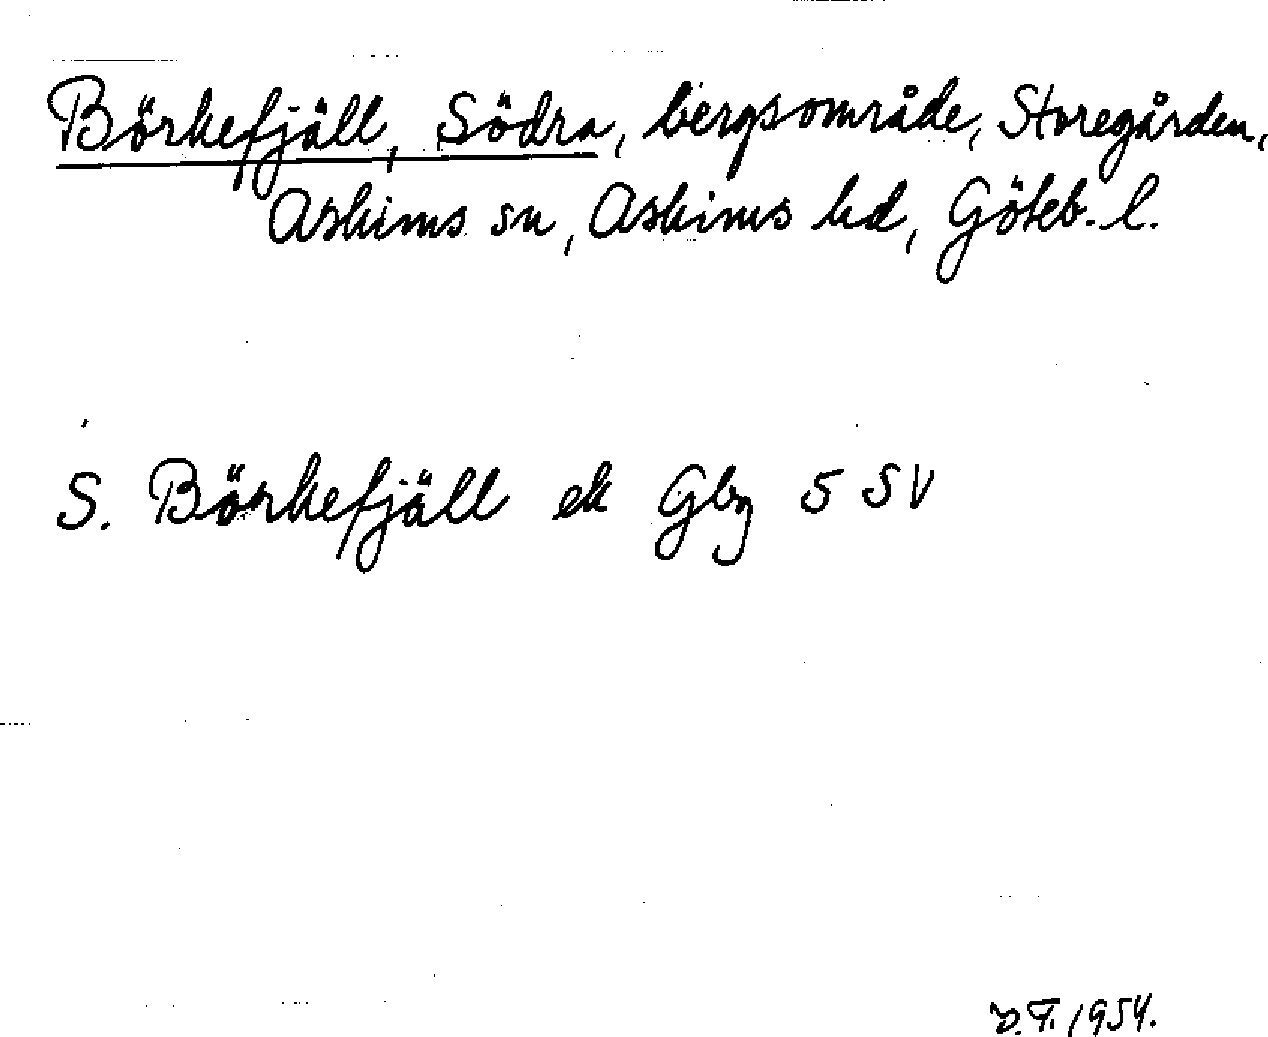 Börkefjäll, Södra, bergsområde, Storegården,
Askims sn, Askims hd, Göteb. l.
S. Börkefjäll ek Gbg 5 SV
1954.